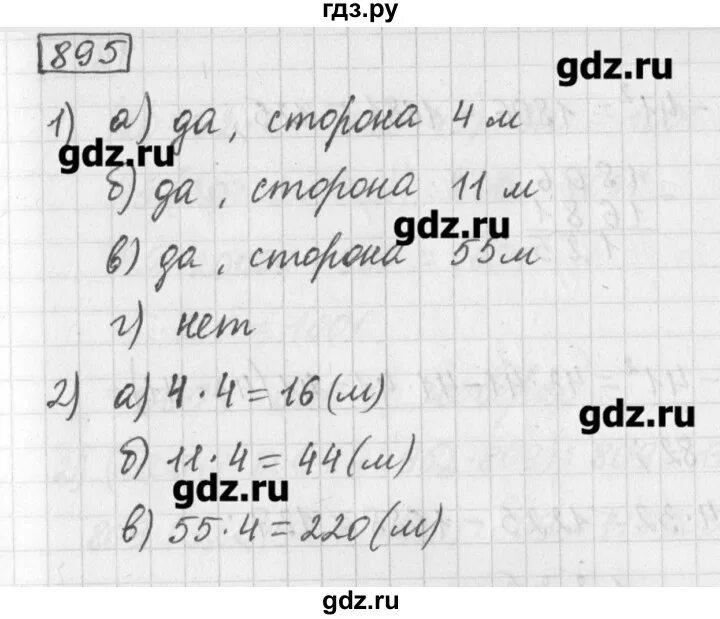 гдз.ру
895
gdz.ru
1) а) да, сторона 4 м
gdz.ru
б) да, сторона 11 м
gdz.ru
в) да, сторона 55 м
г) нет
2) а) 4 · 4 = 16 (м)
gdz.ru
б) 11 · 4 = 44 (м)
gdz.ru
в) 55 · 4 = 220 (м)
gdz.ru